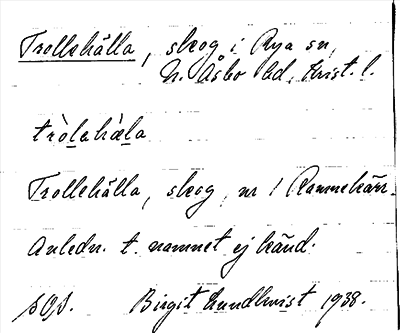 Trollehälla, skog i Rya sn,
N. Åsbo hd, Krist. l.
tròlehæla
Trollehälla, skog, nr 1 Rammekärr.
Anledn. t. namnet ej känd.
Birgit Lundkvist 1938.